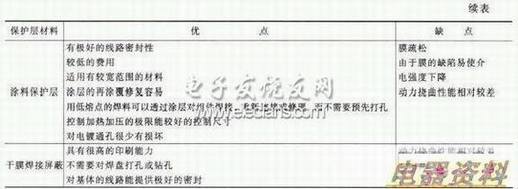 续表
保护层材料 优 点 缺 点
有极好的线路密封性 膜疏松
较低的费用 由于膜的缺陷易使介
适用有较宽范围的材料 电强度下降
涂料保护层 涂层的再涂覆修复容易 动力挠曲性能相对较差
用低熔点的焊料可以透过涂层对组件焊接、重新连接或修理，而不需要预先打孔
控制加热加压的极限能较好的控制尺寸
对电镀通孔很少有损坏
具有很高的印刷能力 动力挠曲性能相对较差
干膜焊接屏蔽 不需要对焊盘打孔或钻孔
对基体的线路能提供极好的密封
电子发烧友网
电器资料